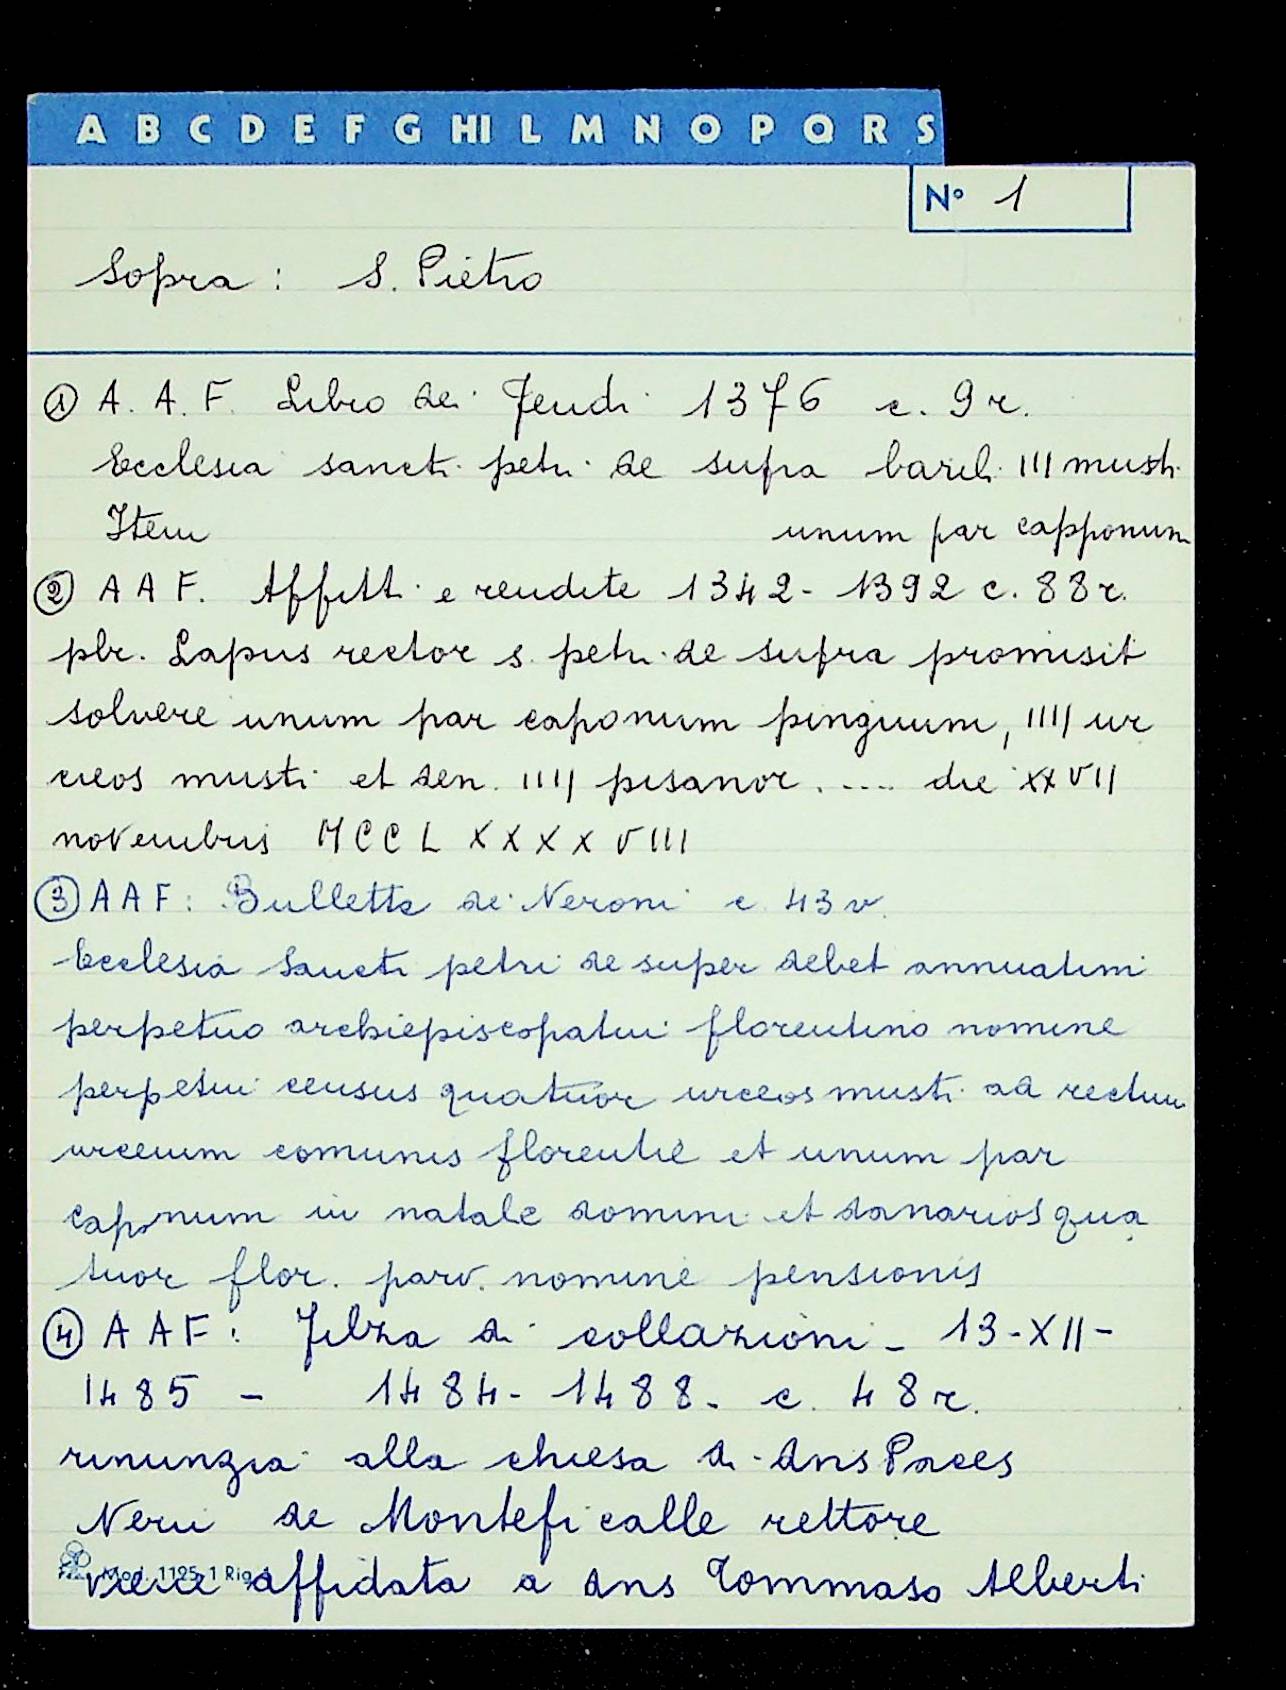 A B C D E F G HI L M N O P Q R S
N° 1
Sopra: S. Pietro
① A. A. F. Libro dei feudi 1376 c. 9 r.
Ecclesia sancti petri de supra baril. III musti
Item unum par capponum
② A A F. Affitti e rendite 1342 - 1392 c. 88 r.
pbr. Lapus rector s. petri de supra promisit
solvere unum par caponum pinguium, IIII ur
ceos musti et den. IIII pisanor. .... die XXVII
novembris MCCLXXXXVIII
③ A A F: Bullettone Neroni c. 43 v.
Ecclesia Sancti petri de super debet annuatim
perpetuo archiepiscopatui florentino nomine
perpetui census quatuor urceos musti ad rectum
urceum comunis florentie et unum par
caponum in natale domini et danarios qua
tuor flor. parv. nomine pensionis
④ A A F: Filza di collazioni - 13-XII-
1485 - 1484 - 1488 - c. 48 r.
rinunzia alla chiesa di dns Paces
Neri de Monteficalle rettore
Mod. 1125/1 Riga
viene affidata a dns Tommaso Alberti